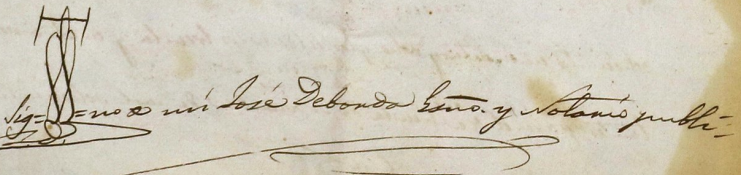 Sig=no de mí José Deborda Esno. y Notario publi=